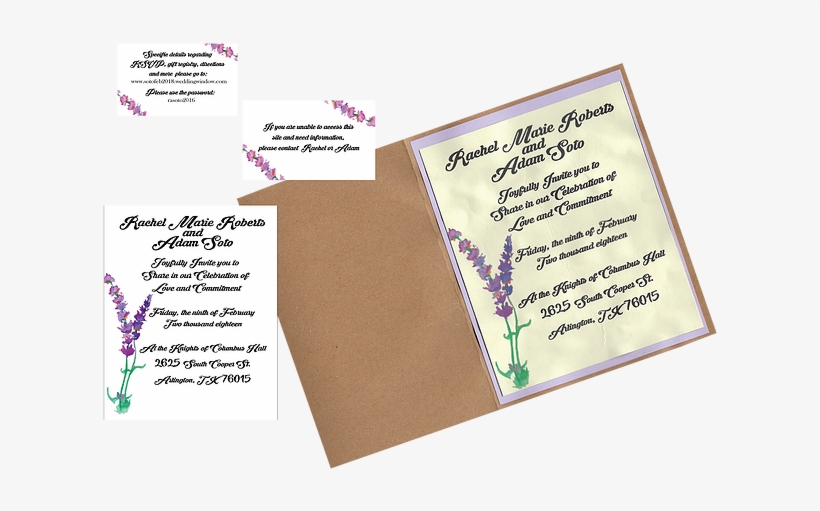 Specific details regarding
RSVP, gift registry, directions
and more please go to:
www.sotofeb2018.weddingwindow.com
Please use the password:
rasoto2016
If you are unable to access this
site and need information,
please contact Rachel or Adam
Rachel Marie Roberts
and
Adam Soto
Joyfully Invite you to
Share in our Celebration of
Love and Commitment
Friday, the ninth of February
Two thousand eighteen
At the Knights of Columbus Hall
2625 South Cooper St.
Arlington, TX 76015
Rachel Marie Roberts
and
Adam Soto
Joyfully Invite you to
Share in our Celebration of
Love and Commitment
Friday, the ninth of February
Two thousand eighteen
At the Knights of Columbus Hall
2625 South Cooper St.
Arlington, TX 76015